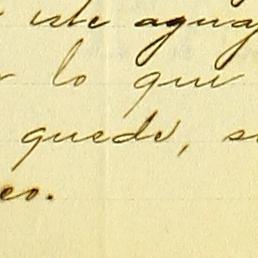 este agua
lo que
quede, s
eo.